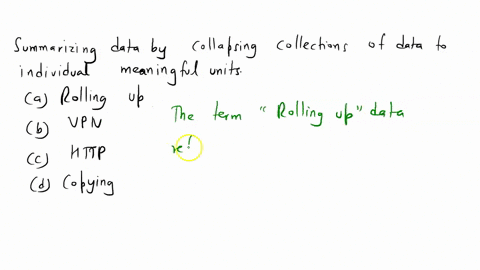 Summarizing data by collapsing collections of data to
individual meaningful units.
(a) Rolling up
(b) VPN
(c) HTTP
(d) Copying
The term "Rolling up" data